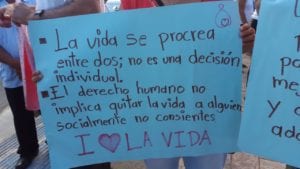 ▪ La vida se procrea
entre dos; no es una decisión
individual.
▪ El derecho humano no
implica quitar la vida a alguien
socialmente no consientes
I ♥ LA VIDA
me
y
ad